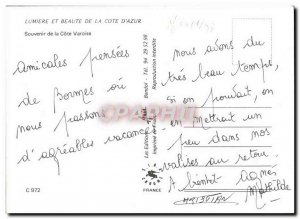 LUMIERE ET BEAUTE DE LA COTE D'AZUR
Souvenir de la Côte Varoise
Amicales pensées
de Bormes où
nous passons
d'agréables vacances
C 972
Les Editions
Imprimé
Bandol - Tél. 94 29 52 98
Reproduction interdite
FRANCE
nous avons du
très beau temps,
si on pouvait, on
en mettrait un
peu dans nos
valises au retour.
A bientôt Agnès
Mathilde